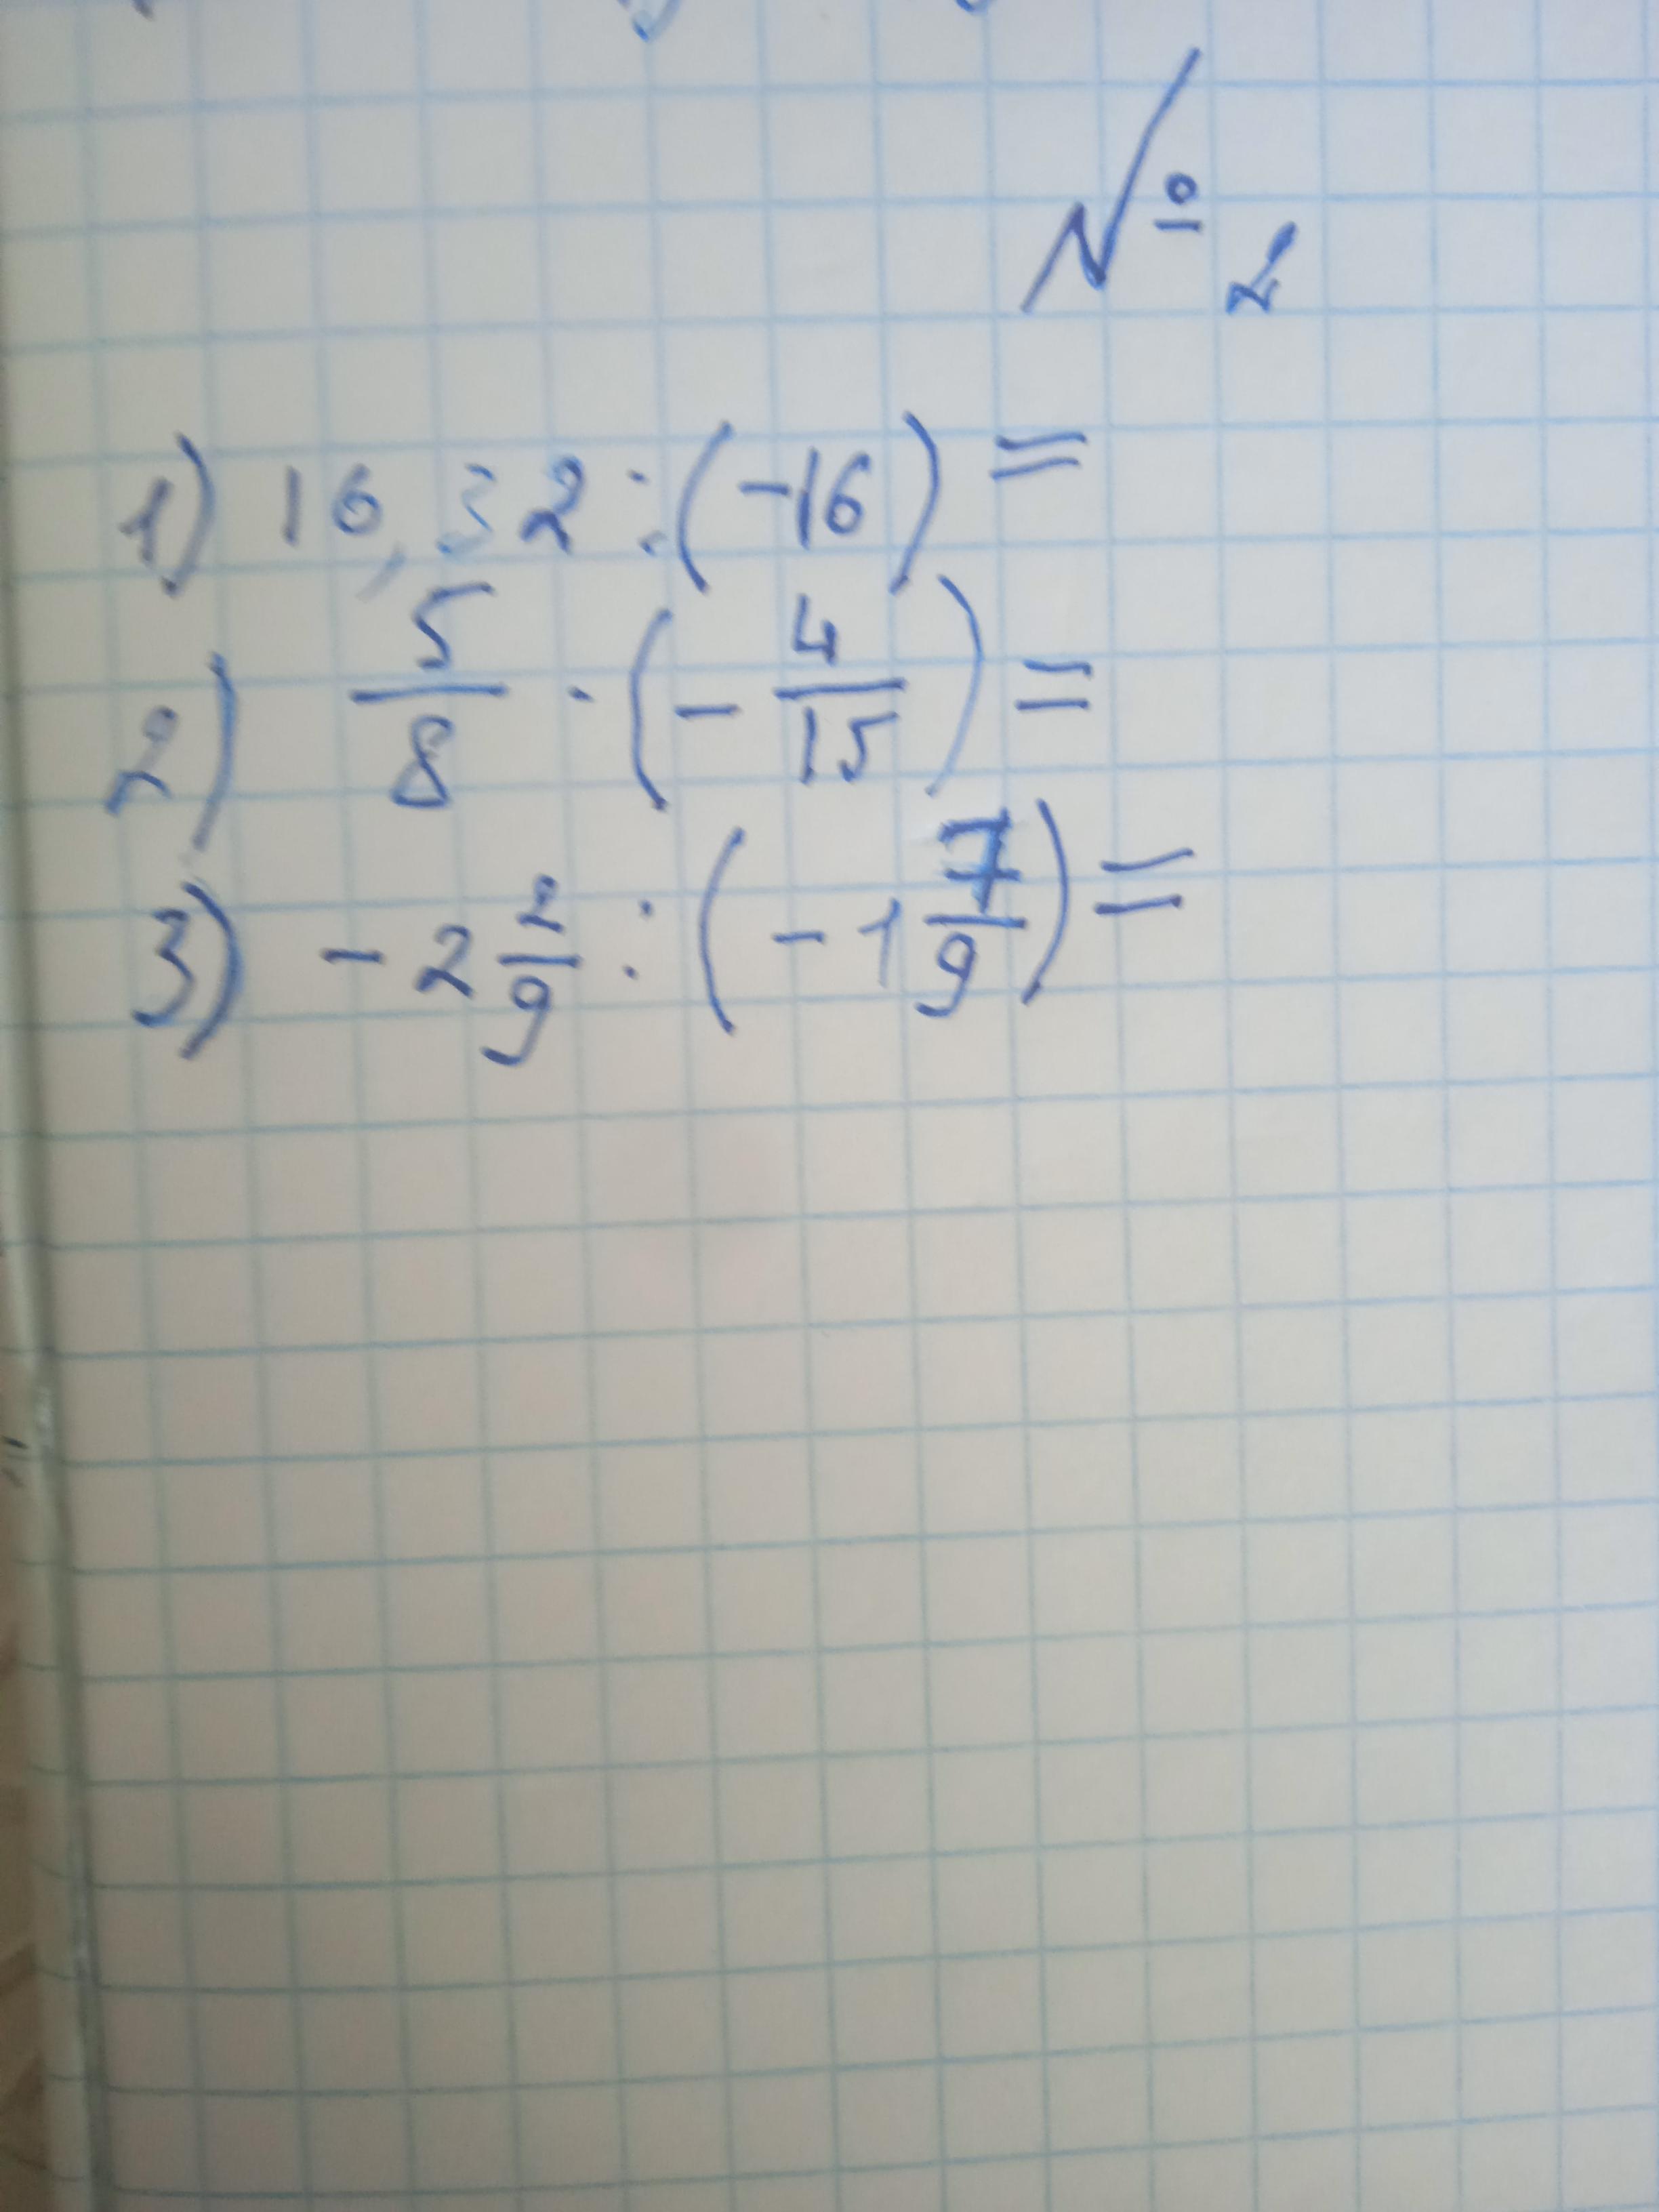 № 2
1) 16,32 : (-16) =
2) 5/8 · (- 4/15) =
3) - 2 2/9 : (- 1 7/9) =